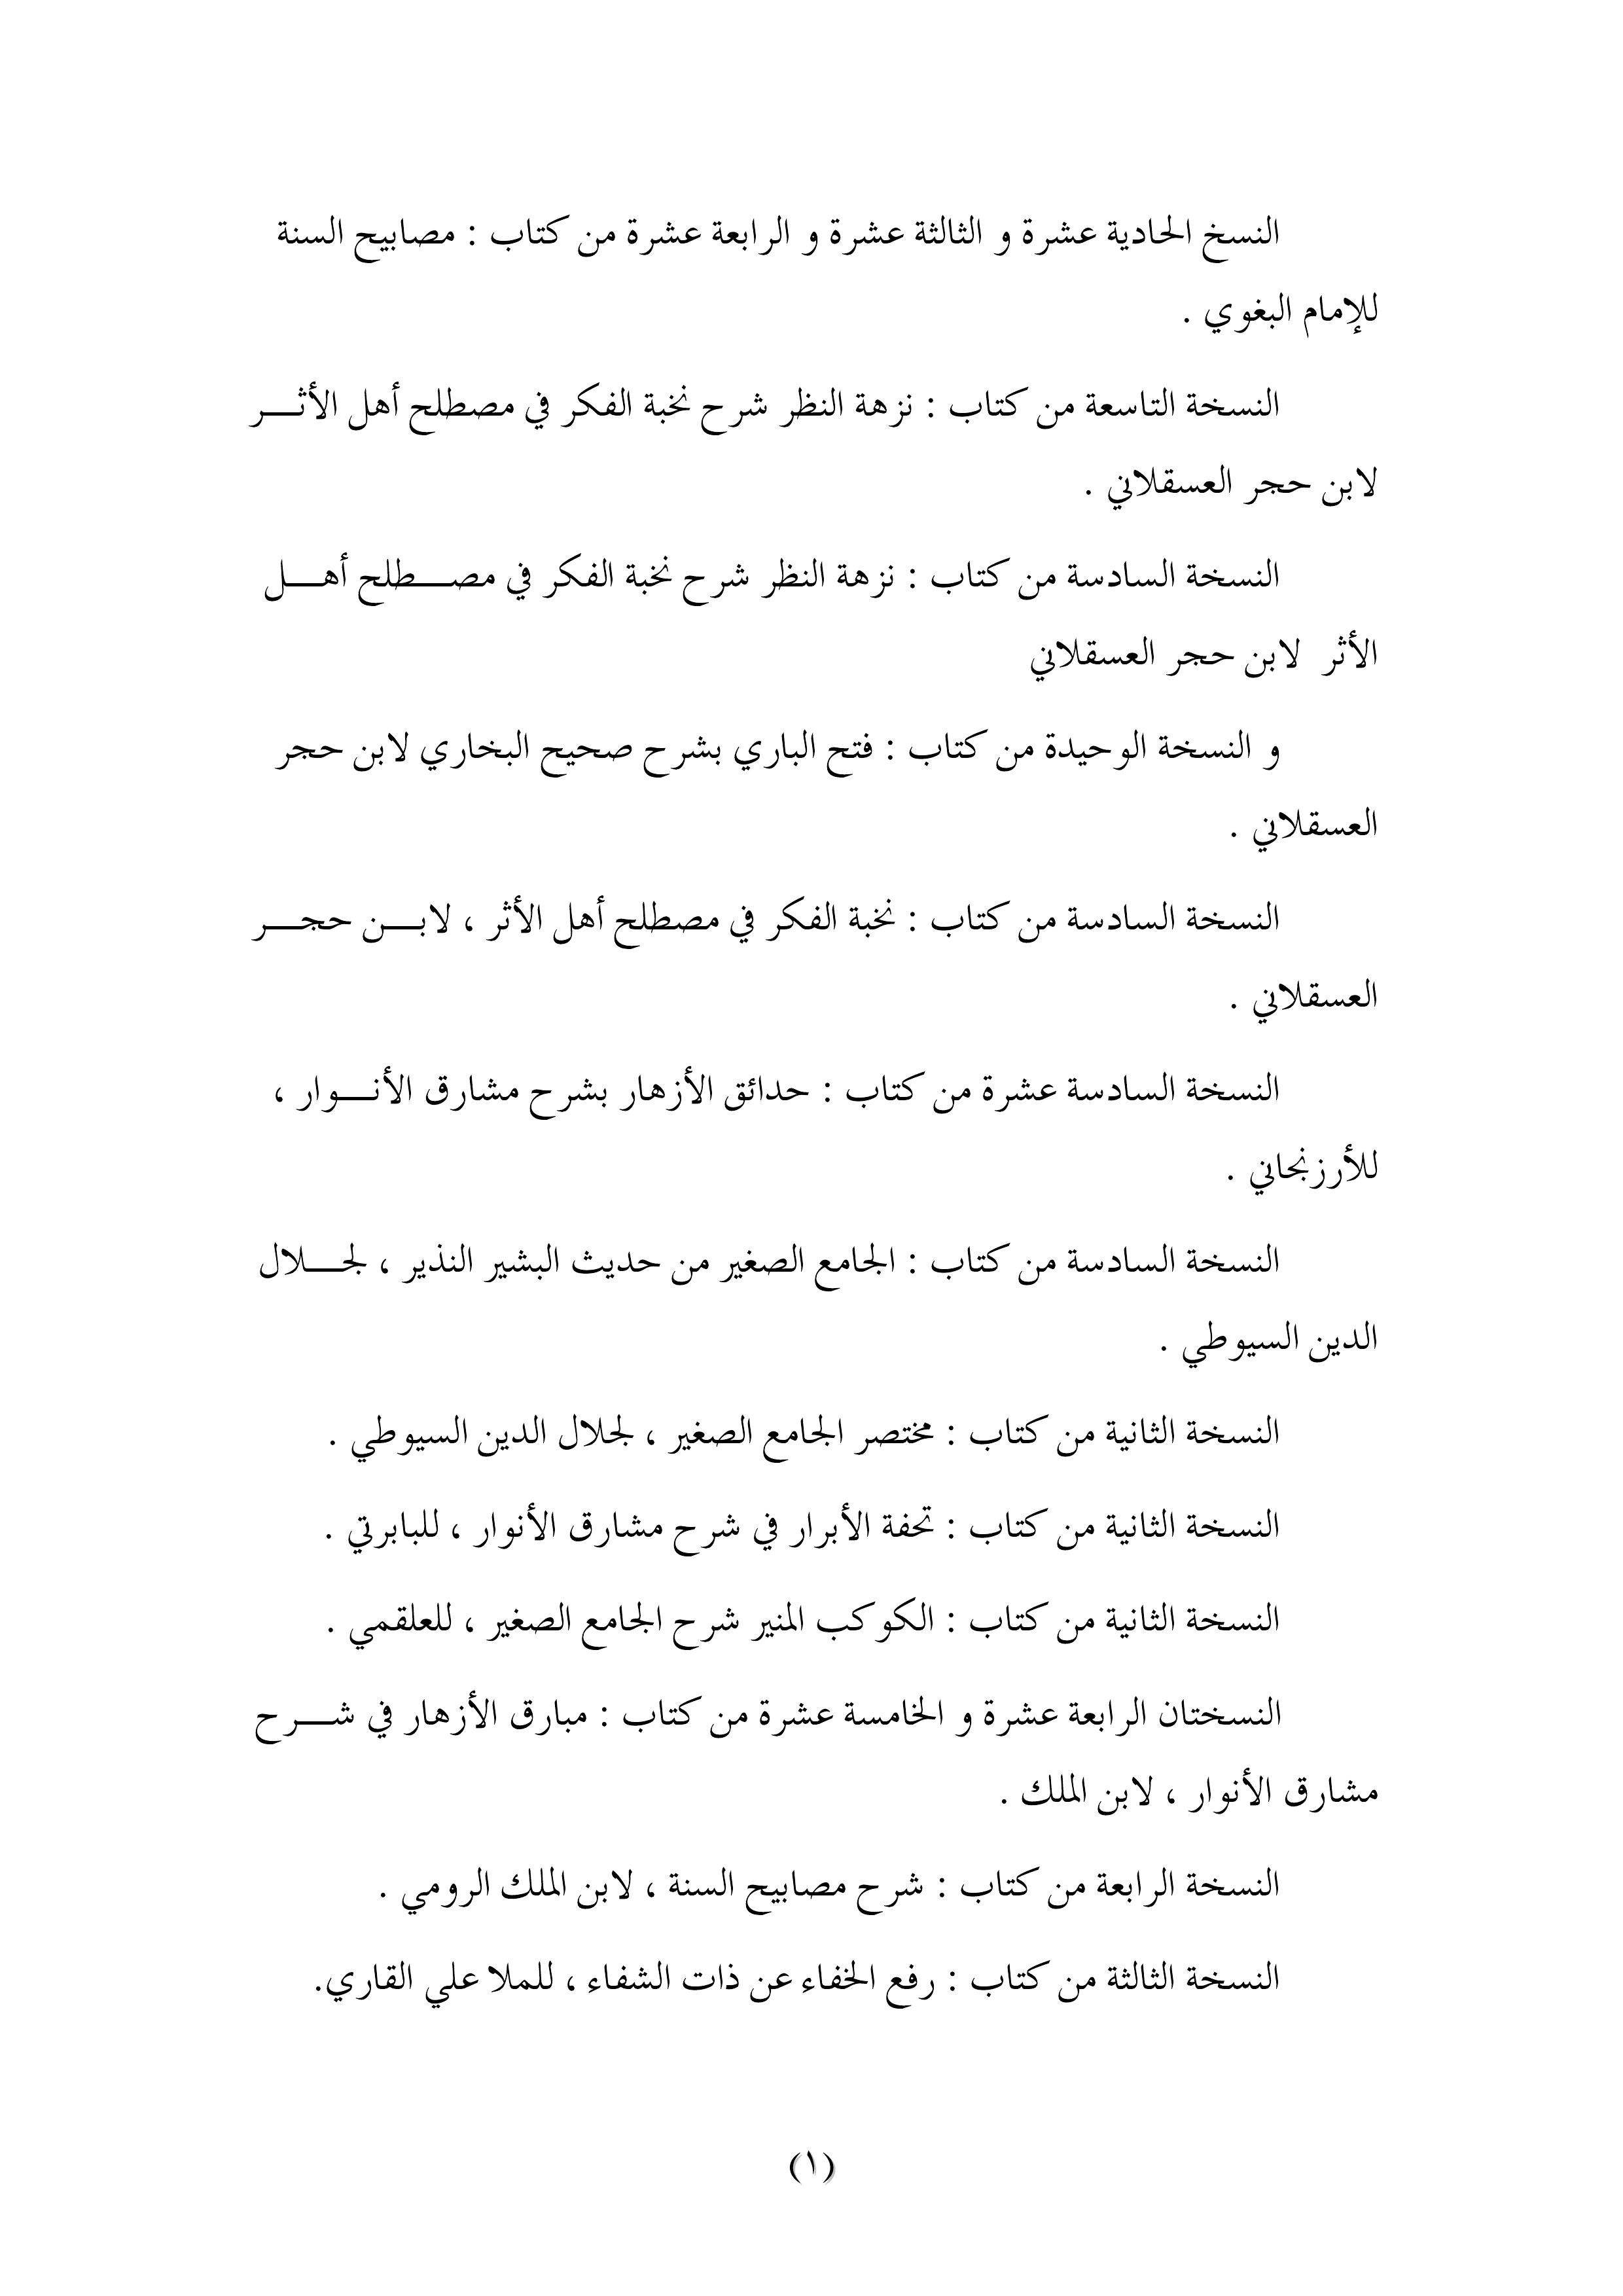 النسخ الحادية عشرة و الثالثة عشرة و الرابعة عشرة من كتاب : مصابيح السنة
للإمام البغوي .
النسخة التاسعة من كتاب : نزهة النظر شرح نخبة الفكر في مصطلح أهل الأثـــر
لابن حجر العسقلاني .
النسخة السادسة من كتاب : نزهة النظر شرح نخبة الفكر في مصـــطلح أهـــل
الأثر لابن حجر العسقلاني
و النسخة الوحيدة من كتاب : فتح الباري بشرح صحيح البخاري لابن حجر
العسقلاني .
النسخة السادسة من كتاب : نخبة الفكر في مصطلح أهل الأثر ، لابـــن حجـــر
العسقلاني .
النسخة السادسة عشرة من كتاب : حدائق الأزهار بشرح مشارق الأنـــوار ،
للأرزنجاني .
النسخة السادسة من كتاب : الجامع الصغير من حديث البشير النذير ، لجـــلال
الدين السيوطي .
النسخة الثانية من كتاب : مختصر الجامع الصغير ، لجلال الدين السيوطي .
النسخة الثانية من كتاب : تحفة الأبرار في شرح مشارق الأنوار ، للبابرتي .
النسخة الثانية من كتاب : الكوكب المنير شرح الجامع الصغير ، للعلقمي .
النسختان الرابعة عشرة و الخامسة عشرة من كتاب : مبارق الأزهار في شـــرح
مشارق الأنوار ، لابن الملك .
النسخة الرابعة من كتاب : شرح مصابيح السنة ، لابن الملك الرومي .
النسخة الثالثة من كتاب : رفع الخفاء عن ذات الشفاء ، للملا علي القاري.
(١)